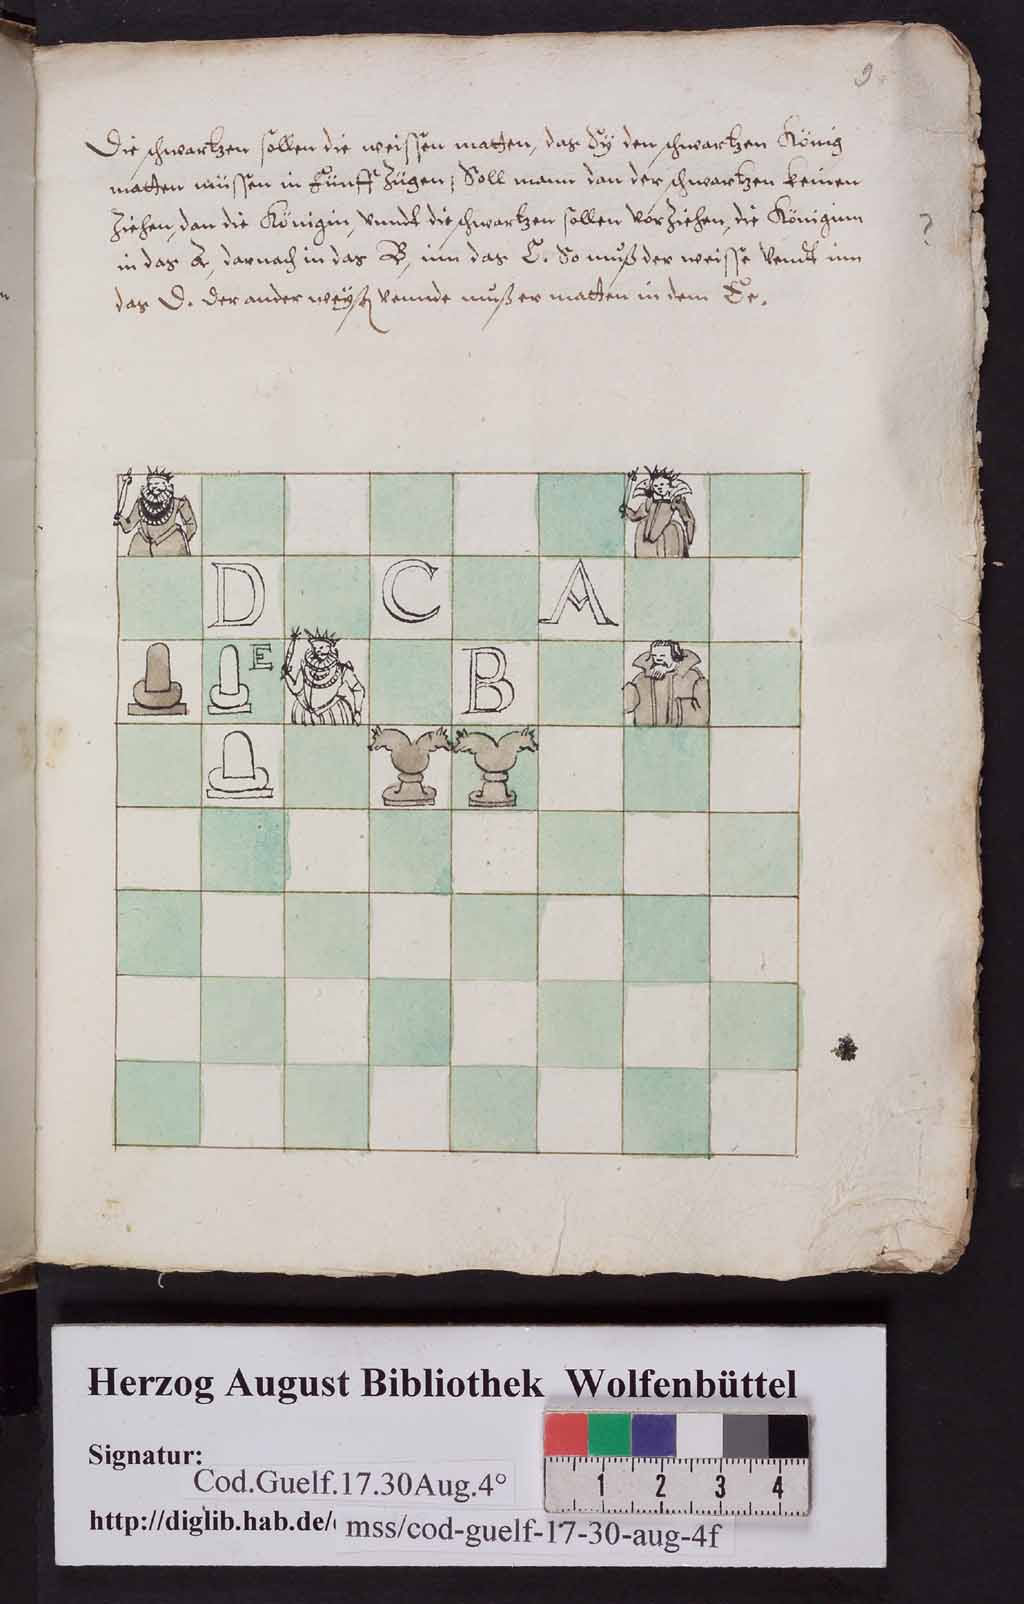 9.
Die schwartzen sollen die weissen matten, das Sy den schwartzen König
matten müssen in Fünff Zügen, Soll mann dan der schwartzen keinen
Ziehen, dan die Königin, Vnndt die schwartzen sollen vor Ziehen, die Königinn
in das A, darnach in das B, inn das C. So muß der weisse Vendt inn
das D. der ander weyß Vennde muß er matten in dem E.
?
D C A
E B
Herzog August Bibliothek Wolfenbüttel
Signatur:
Cod.Guelf.17.30Aug.4°
http://diglib.hab.de/
mss/cod-guelf-17-30-aug-4f
1 2 3 4